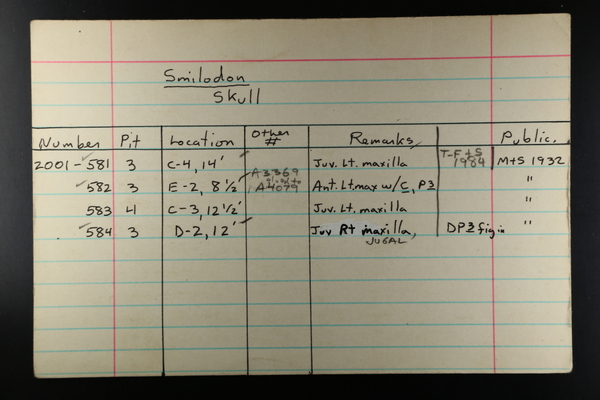 Smilodon
Skull
Number Pit Location Other # Remarks Public.
2001-581 3 C-4, 14' Juv. Lt. maxilla T-F+S 1984 M+S 1932
582 3 E-2, 8 1/2' A3369 A4079 Ant. Lt. max w/ C, P3 "
583 4 C-3, 12 1/2' Juv. Lt. maxilla "
584 3 D-2, 12' Juv Rt maxilla, DP3 fig in "
JUGAL